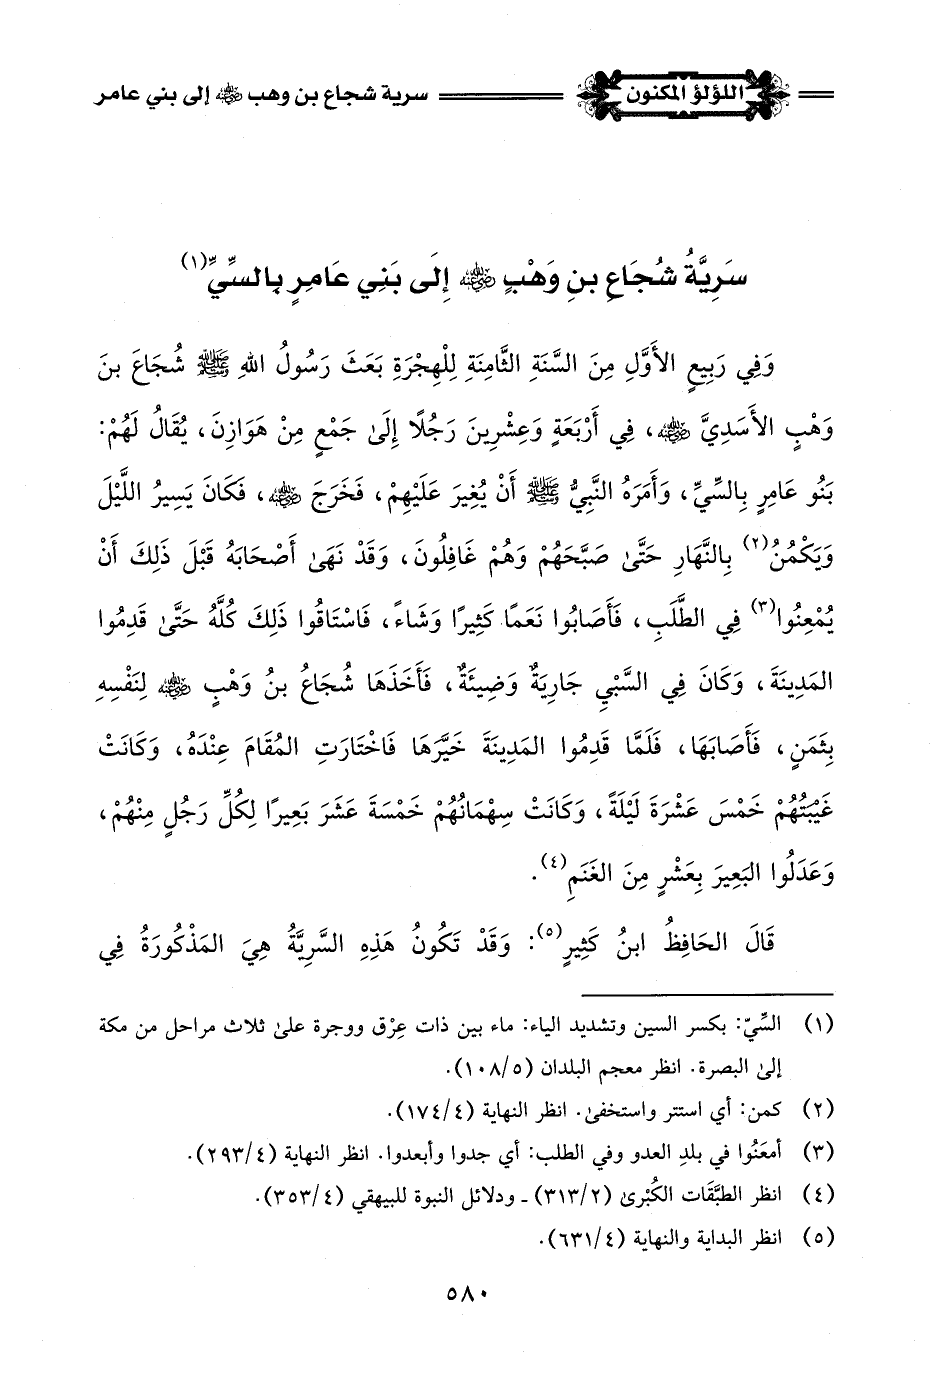 اللؤلؤ المكنون
سرية شجاع بن وهب ﷺ إلى بني عامر
سَرِيَّةُ شُجَاعِ بنِ وَهْبٍ رضي الله عنه إِلَى بَنِي عَامِرٍ بِالسِّيِّ (١)
وَفِي رَبِيعٍ الأَوَّلِ مِنَ السَّنَةِ الثَّامِنَةِ لِلْهِجْرَةِ بَعَثَ رَسُولُ اللهِ ﷺ شُجَاعَ بنَ
وَهْبٍ الأَسَدِيَّ رضي الله عنه، فِي أَرْبَعَةٍ وَعِشْرِينَ رَجُلًا إِلَىٰ جَمْعٍ مِنْ هَوَازِنَ، يُقَالُ لَهُمْ:
بَنُو عَامِرٍ بِالسِّيِّ، وَأَمَرَهُ النَّبِيُّ ﷺ أَنْ يُغِيرَ عَلَيْهِمْ، فَخَرَجَ رضي الله عنه، فَكَانَ يَسِيرُ اللَّيْلَ
وَيَكْمُنُ (٢) بِالنَّهَارِ حَتَّىٰ صَبَّحَهُمْ وَهُمْ غَافِلُونَ، وَقَدْ نَهَىٰ أَصْحَابَهُ قَبْلَ ذَلِكَ أَنْ
يُمْعِنُوا (٣) فِي الطَّلَبِ، فَأَصَابُوا نَعَمًا كَثِيرًا وَشَاءً، فَاسْتَاقُوا ذَلِكَ كُلَّهُ حَتَّىٰ قَدِمُوا
المَدِينَةَ، وَكَانَ فِي السَّبْيِ جَارِيَةٌ وَضِيئَةٌ، فَأَخَذَهَا شُجَاعُ بنُ وَهْبٍ رضي الله عنه لِنَفْسِهِ
بِثَمَنٍ، فَأَصَابَهَا، فَلَمَّا قَدِمُوا المَدِينَةَ خَيَّرَهَا فَاخْتَارَتِ المُقَامَ عِنْدَهُ، وَكَانَتْ
غَيْبَتُهُمْ خَمْسَ عَشْرَةَ لَيْلَةً، وَكَانَتْ سِهْمَانُهُمْ خَمْسَةَ عَشَرَ بَعِيرًا لِكُلِّ رَجُلٍ مِنْهُمْ،
وَعَدَلُوا البَعِيرَ بِعَشْرٍ مِنَ الغَنَمِ (٤).
قَالَ الحَافِظُ ابنُ كَثِيرٍ (٥): وَقَدْ تَكُونُ هَذِهِ السَّرِيَّةُ هِيَ المَذْكُورَةُ فِي
(١) السِّيّ: بكسر السين وتشديد الياء: ماء بين ذات عِرْق ووجرة علىٰ ثلاث مراحل من مكة
إلىٰ البصرة. انظر معجم البلدان (١٠٨/٥).
(٢) كمن: أي استتر واستخفىٰ. انظر النهاية (١٧٤/٤).
(٣) أمعَنُوا في بلدِ العدو وفي الطلب: أي جدوا وأبعدوا. انظر النهاية (٢٩٣/٤).
(٤) انظر الطبَّقَات الكُبْرىٰ (٣١٣/٢) ـ ودلائل النبوة للبيهقي (٣٥٣/٤).
(٥) انظر البداية والنهاية (٦٣١/٤).
٥٨٠